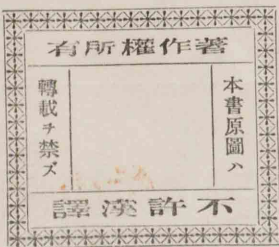 有所權作著
本書原圖ハ
轉載ヲ禁ズ
譯漢許不